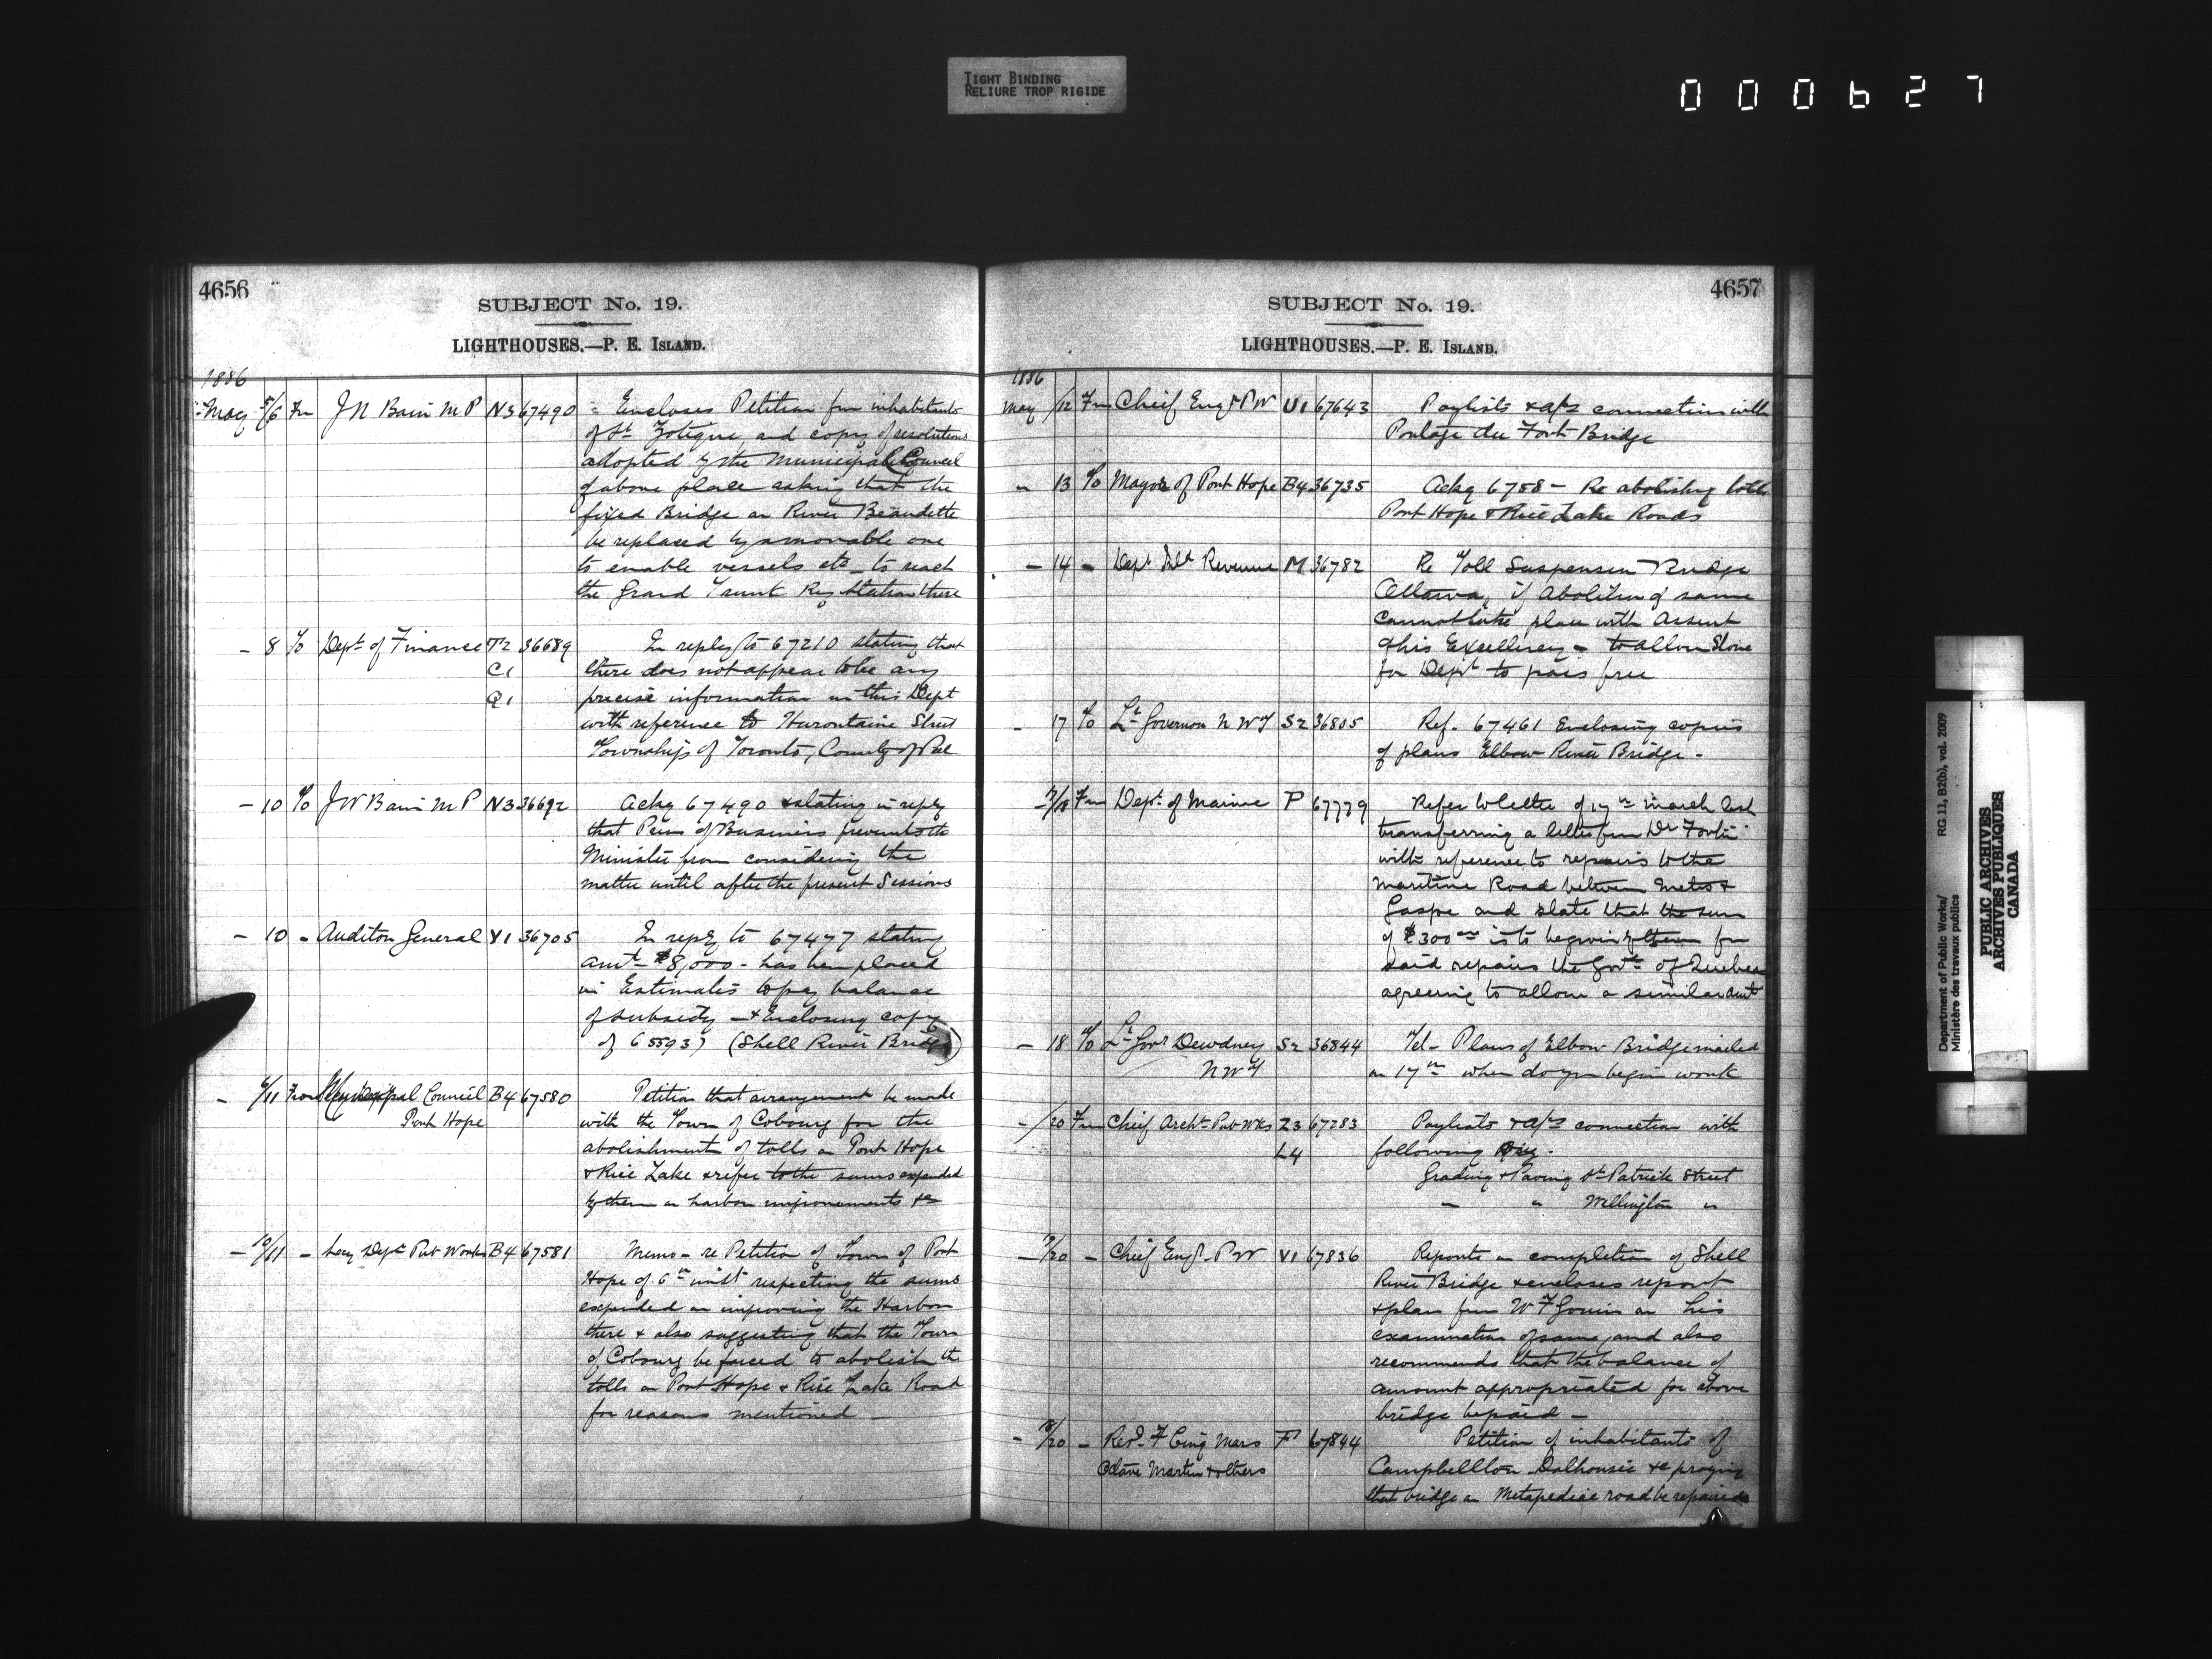 TIGHT BINDING
RELIURE TROP RIGIDE
000627
4656
SUBJECT No. 19.
LIGHTHOUSES.—P. E. ISLAND.
1886
May 5/6 Fm J N Bain M P N3 67490 Encloses Petition fm inhabitants
of St Zotique, and copy of resolutions
adopted by the Municipal Council
of above place asking that the
fixed Bridge on River Beaudette
be replaced by a movable one
to enable vessels etc to reach
the Grand Trunk Ry Station there
- 8 To Dept of Finance T2 36689 In reply to 67210 stating that
C1 there does not appear to be any
Q1 precise information in this Dept
with reference to Hurontario Street
Township of Toronto, County of Peel
- 10 To J W Bain M P N3 36692 Ackg 67490 & stating in reply
that Press of Business prevents the
Minister from considering the
matter until after the present Sessions
- 10 - Auditor General V1 36705 In reply to 67477 stating
amt $8,000 - has been placed
in Estimates to pay balance
of subsidy - & Enclosing copy
of 65593) (Shell River Bridge)
- 6/11 From Municipal Council B4 67580 Petition that arrangement be made
Port Hope with the Town of Cobourg for the
abolishment of tolls on Port Hope
& Rice Lake & refer to the sums expended
by them on harbor improvements &c
- 10/11 - Secy Dept Pub Works B4 67581 Memo - re Petition of Town of Port
Hope of 6th inst respecting the sums
expended on improving the Harbor
there & also suggesting that the Town
of Cobourg be forced to abolish the
tolls on Port Hope & Rice Lake Road
for reasons mentioned -
4657
SUBJECT No. 19.
LIGHTHOUSES.—P. E. ISLAND.
1886
May /12 Fm Chief Engr P W U1 67643 Paylists & a/cs connection with
Portage du Fort Bridge
" 13 To Mayor of Port Hope B4 36735 Ackg 6758- Re abolishing tolls
Port Hope & Rice Lake Roads
- 14 - Dept Inld Revenue M 36782 Re Toll Suspension Bridge
Ottawa, if Abolition of same
cannot take place with Assent
of his Excellency - to allow Stone
for Dept to pass free
- 17 To Lt Governor N W T S2 36805 Ref. 67461 Enclosing copies
of plans Elbow River Bridge -
/18 Fm Dept of Marine P 67779 Refer to letter of 17th March last
transferring a letter from Dr Fortin
with reference to repairs to the
Maritime Road between Metis &
Gaspe and state that the sum
of $300 00 is to be given by them for
said repairs the Govt of Quebec
agreeing to allow a similar amt
- 18 To Lt Govr Dewdney S2 36844 Tel - Plans of Elbow Bridge mailed
N W T on 17th when do you begin work
-/20 Fm Chief Archt Pub Wks Z3 67283 Paylists & a/cs connection with
L4 following
Grading & Paving St Patrick Street
" " Wellington "
/20 - Chief Engr P W V1 67836 Reports on completion of Shell
River Bridge & encloses report
& plan from W F Gouin on his
examination of same, and also
recommends that the balance of
amount appropriated for above
bridge be paid -
- /20 - Revd F Cinq Mars F 67844 Petition of inhabitants of
Octave Martin & others Campbellton Dalhousie &c praying
that bridge on Metapediac road be repaired
Department of Public Works/
Ministère des travaux publics
RG 11, B2(b), vol. 2009
PUBLIC ARCHIVES
ARCHIVES PUBLIQUES
CANADA